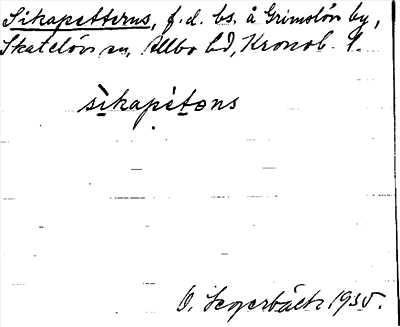 Sikapetterns, f.d. bs. å Grimslöv by,
Skatelövs sn, Allbo hd, Kronob. l.
sìkapètəns
O. Segerbäck 1935.